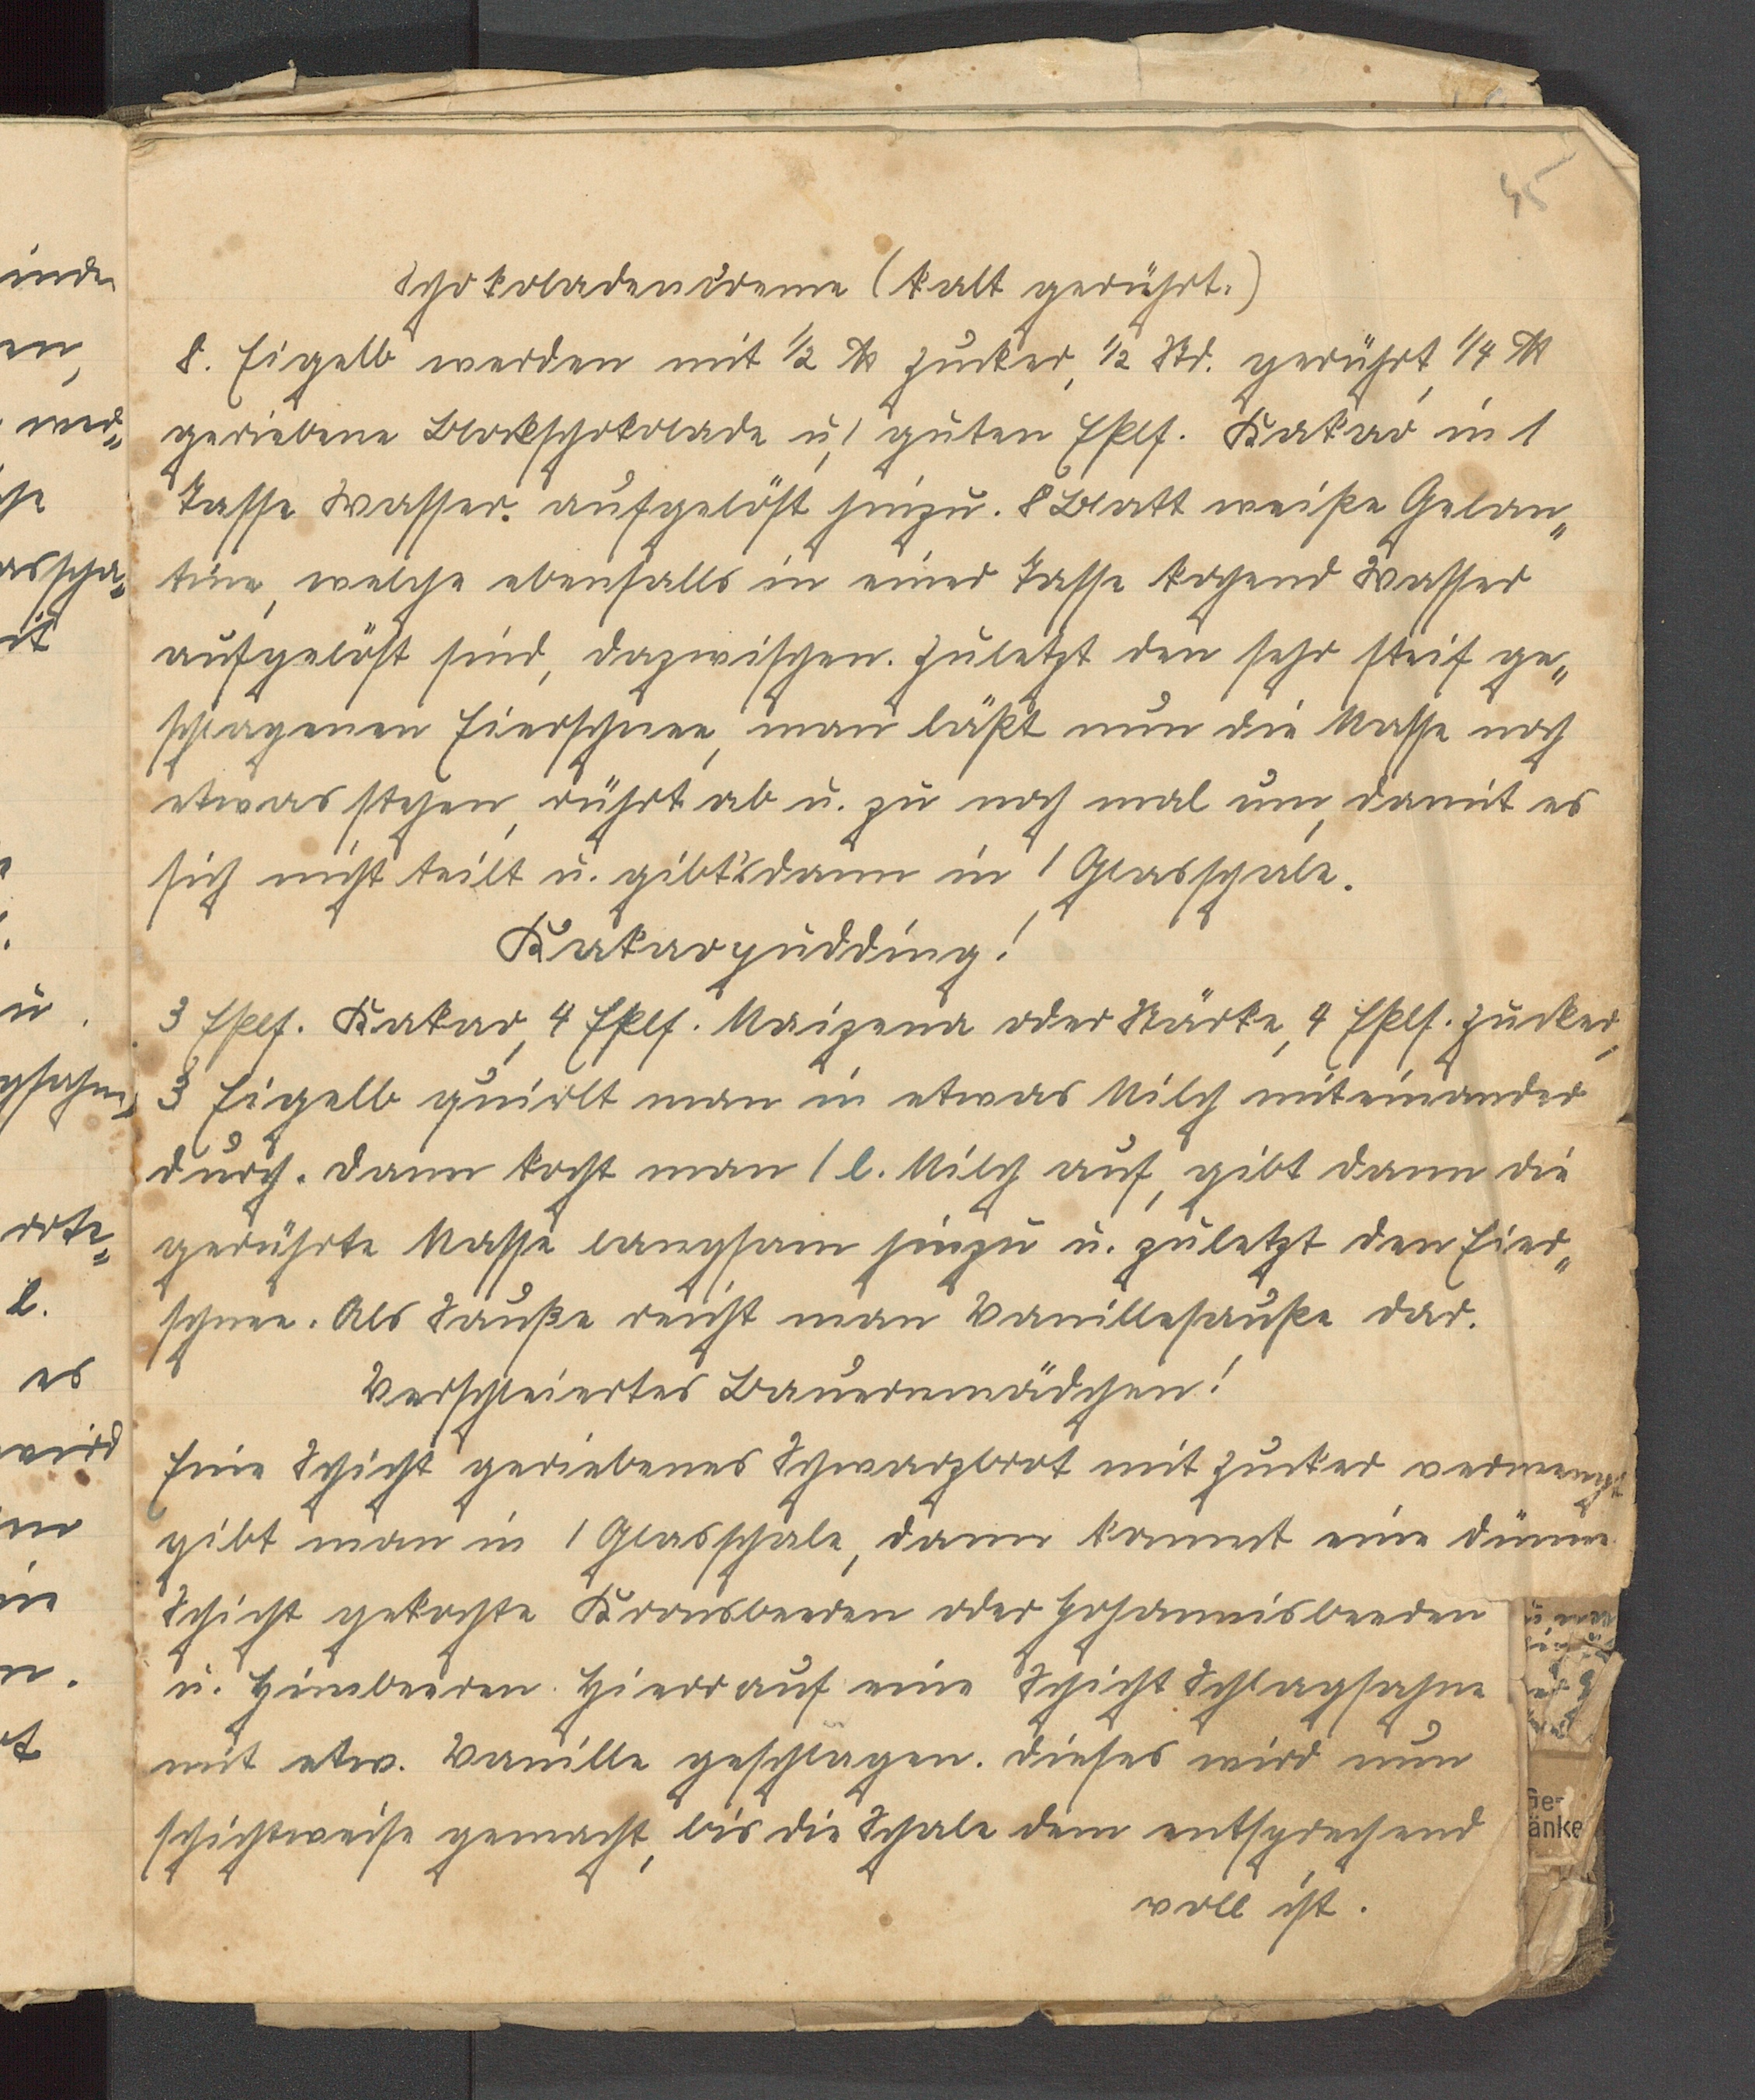 45
Schokoladencreme (kalt gerührt.)
8. Eigelb werden mit 1/2 ℔ Zucker, 1/2 Std. gerührt, 1/4 ℔
geriebene Blockschokolade u, 1 guten Eßlf. Kakao in 1
Tasse Wasser. aufgelöst hinzu. 8 Blatt weiße Gelan„
tine, welche ebenfalls in einer Tasse kochend Wasser
aufgelöst sind, dazwischen. Zuletzt den sehr steif ge„
schlagenen Eierschnee, man läßt nun die Masse noch
etwas stehen, rührt ab u. zu noch mal um, damit es
sich nicht teilt u. gibt's dann in 1 Glasschale.
Kakaopudding!
3 Eßlf. Kakao, 4 Eßlf. Maizena oder Stärke, 4 Eßlf. Zucker,
3 Eigelb quirlt man in etwas Milch miteinander
durch. Dann kocht man 1 l. Milch auf, gibt dann die
gerührte Masse langsam hinzu u. zuletzt den Eier„
schnee. Als Sauße reicht man Vanillesauße dar.
Verschleiertes Bauernmädchen!
Eine Schicht geriebenes Schwarzbrot mit Zucker vermengt
gibt man in 1 Glasschale, dann kommt eine dünne
Schicht gekochte Kronsbeeren oder Johannisbeeren
u. Himbeeren. Hierrauf eine Schicht Schlagsahne
mit etw. Vanille geschlagen. Dieses wird nun
schichtweise gemacht, bis die Schale dem entsprechend
voll ist.
Ge-
änke